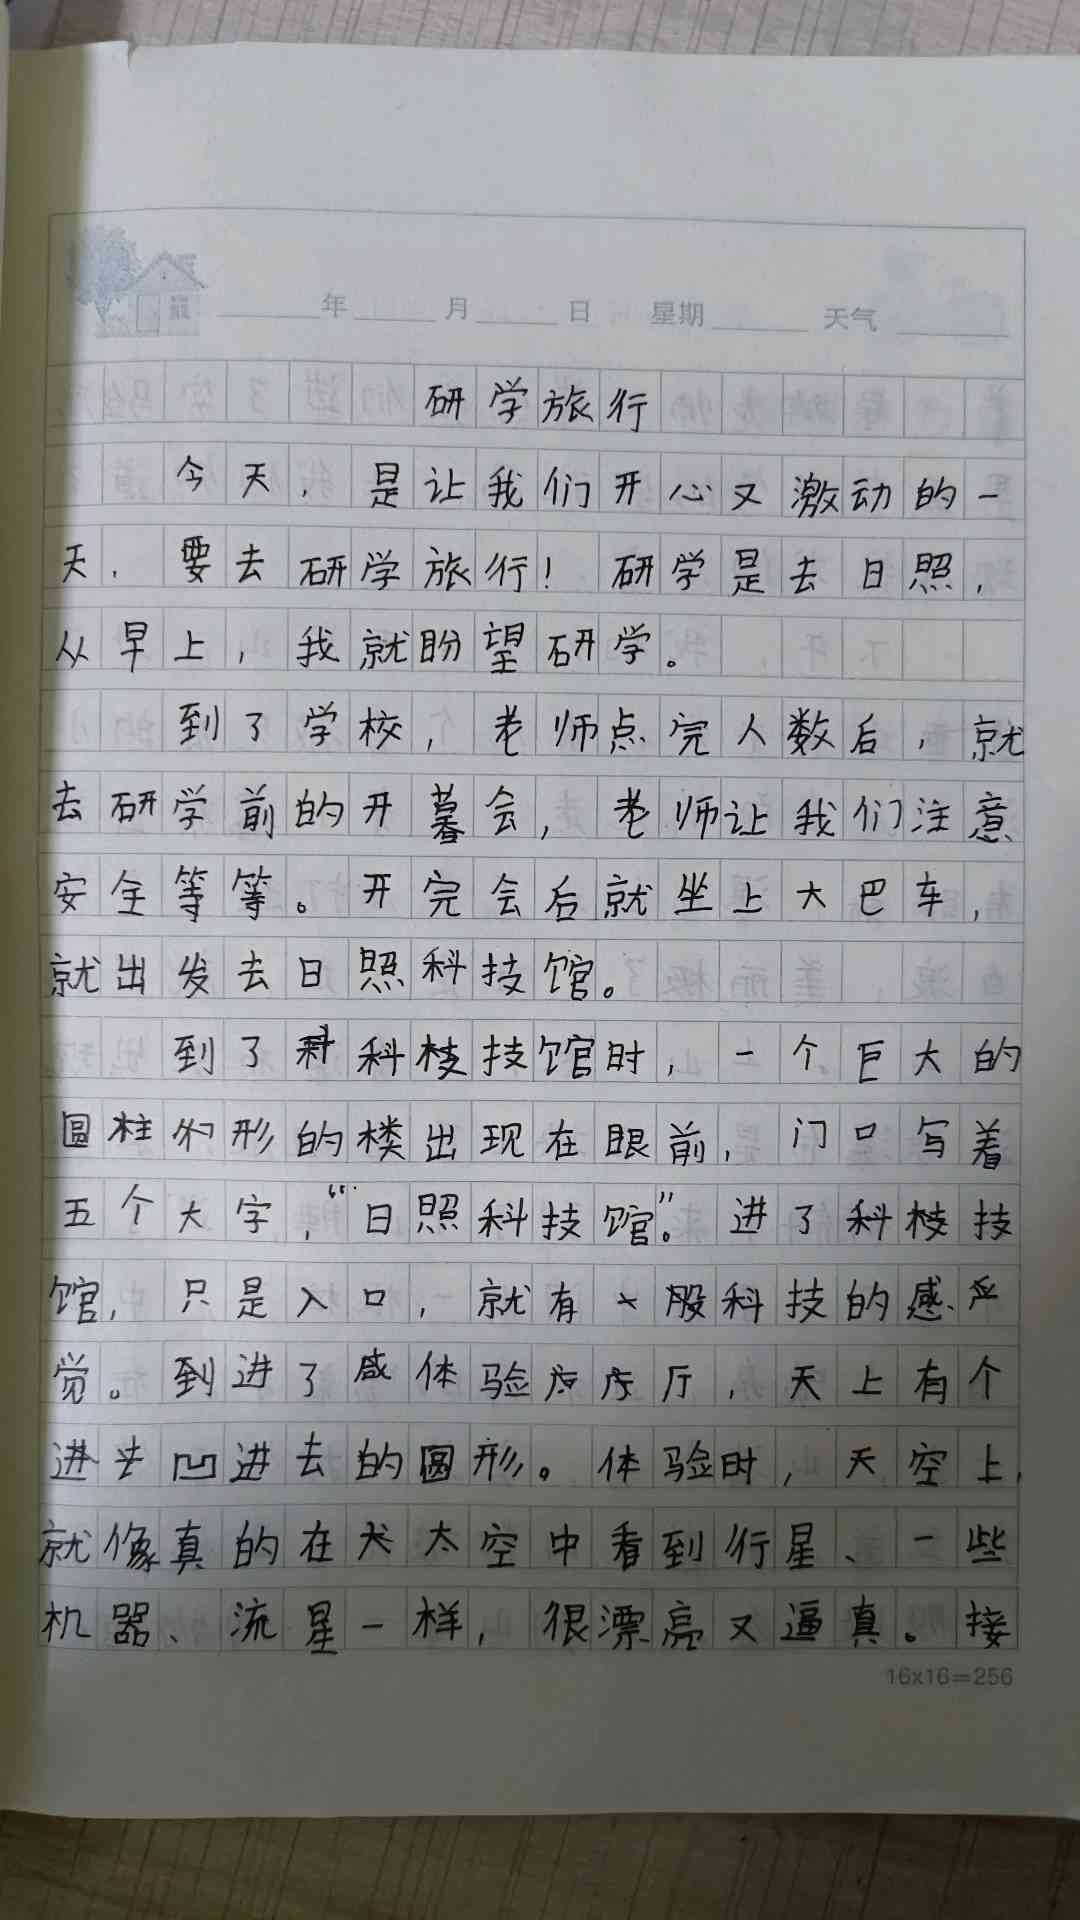 年 月 日 星期 天气
研学旅行
今天，是让我们开心又激动的一
天，要去研学旅行！研学是去日照，
从早上，我就盼望研学。
到了学校，老师点完人数后，就
去研学前的开暮会，老师让我们注意
安全等等。开完会后就坐上大巴车，
就出发去日照科技馆。
到了科技馆时，一个巨大的
圆柱形的楼出现在眼前，门口写着
五个大字，“日照科技馆”。进了科技
馆，只是入口，就有一股科技的感
觉。到进了体验厅，天上有个
凹进去的圆形。体验时，天空上，
就像真的在太空中看到行星、一些
机器、流星一样，很漂亮又逼真。接
16x16=256